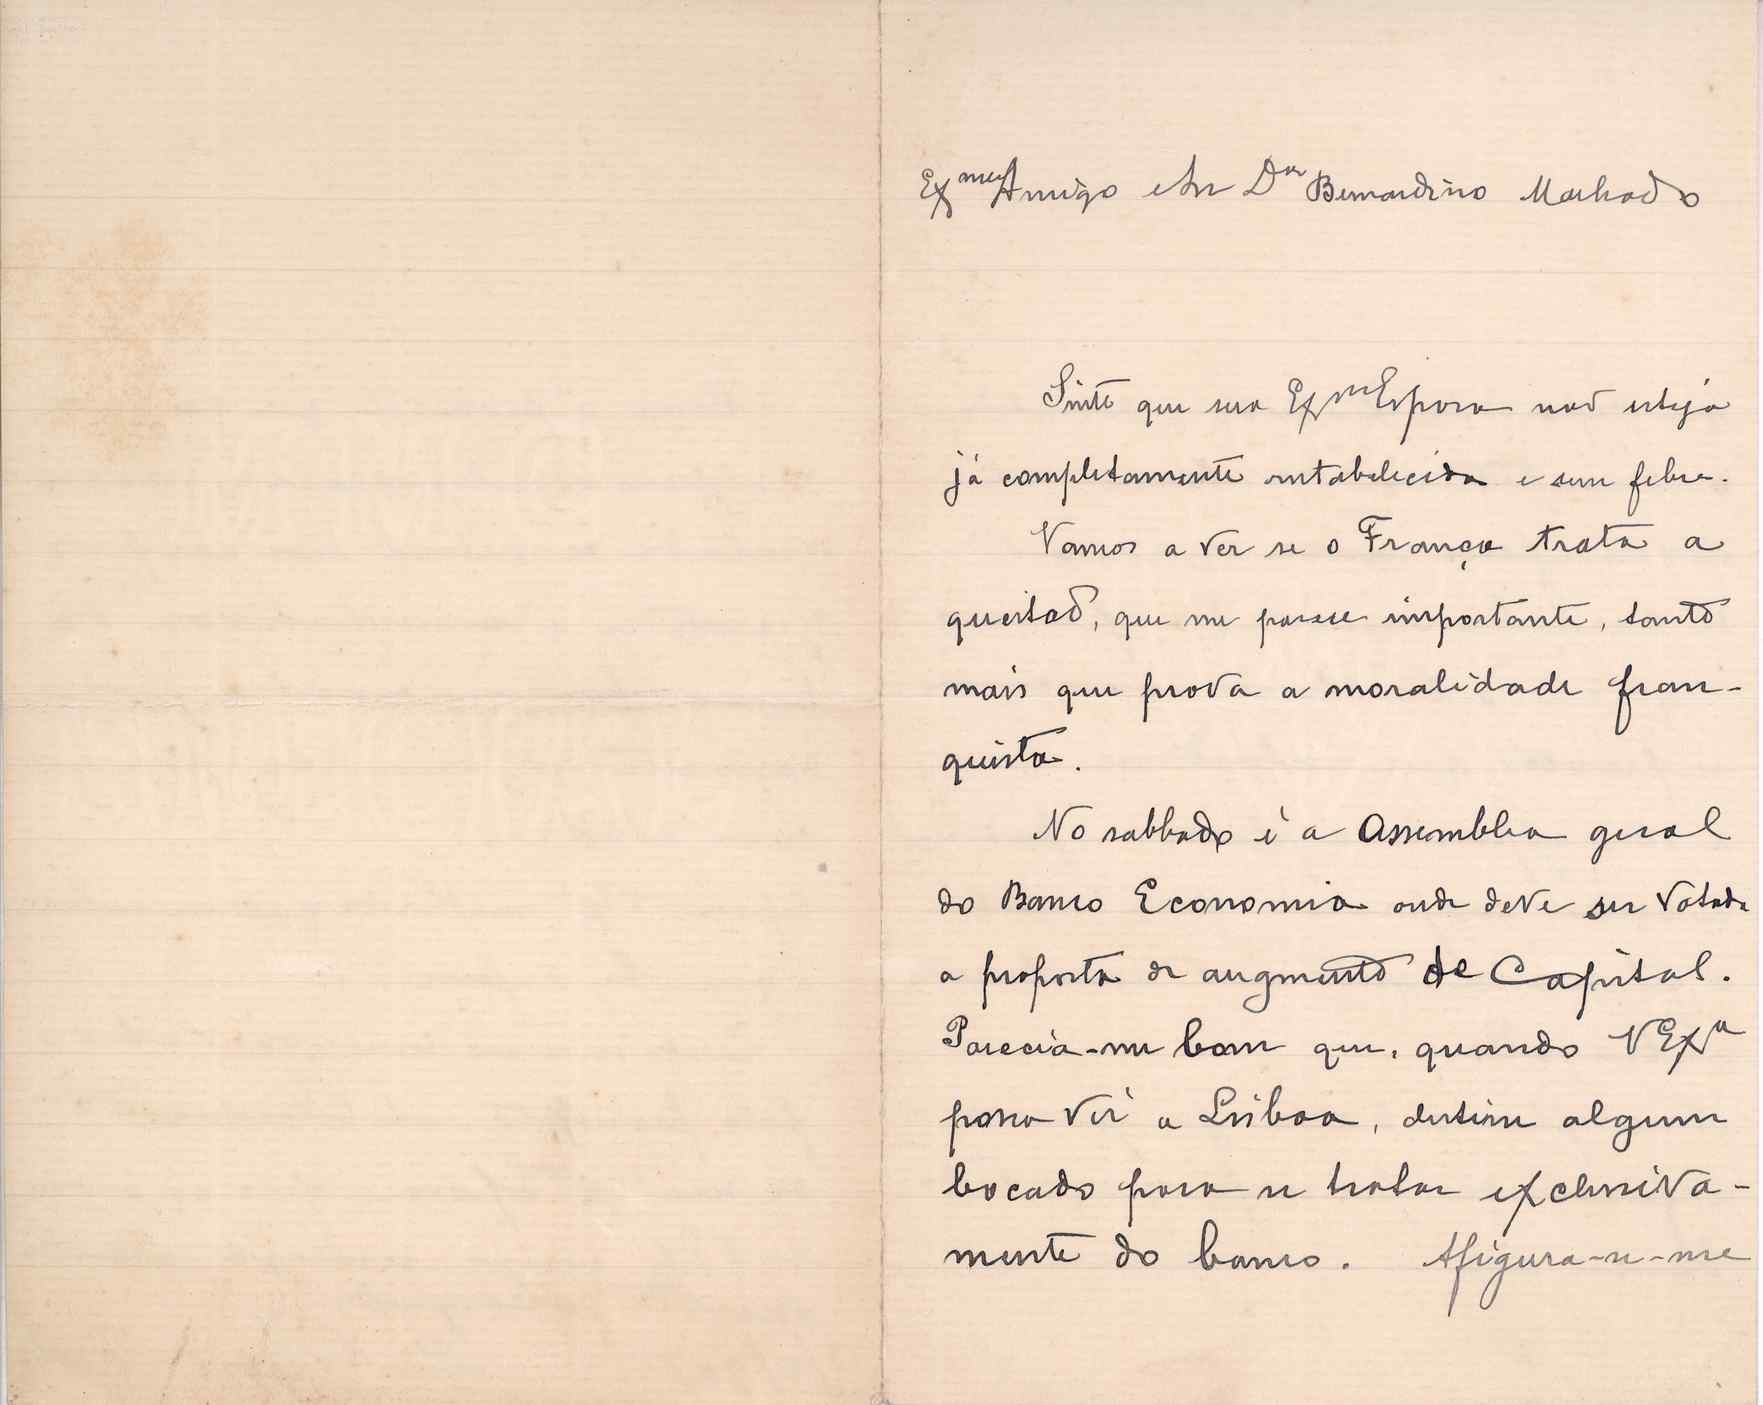 Exmo Amigo e Sr Dor Bernardino Machado
Sinto que sua Exma Esposa não esteja
já completamente restabelecida e sem febre.
Vamos a ver se o França trata a
questão, que me parece importante, tanto
mais que prova a moralidade fran-
quista.
No sabbado é a Assemblea geral
do Banco Economia onde deve ser votada
a proposta de augmento de Capital.
Parecia-me bom que, quando VExa
possa vir a Lisboa, destine algum
bocado para se tratar exclusiva-
mente do banco. Afigura-se-me